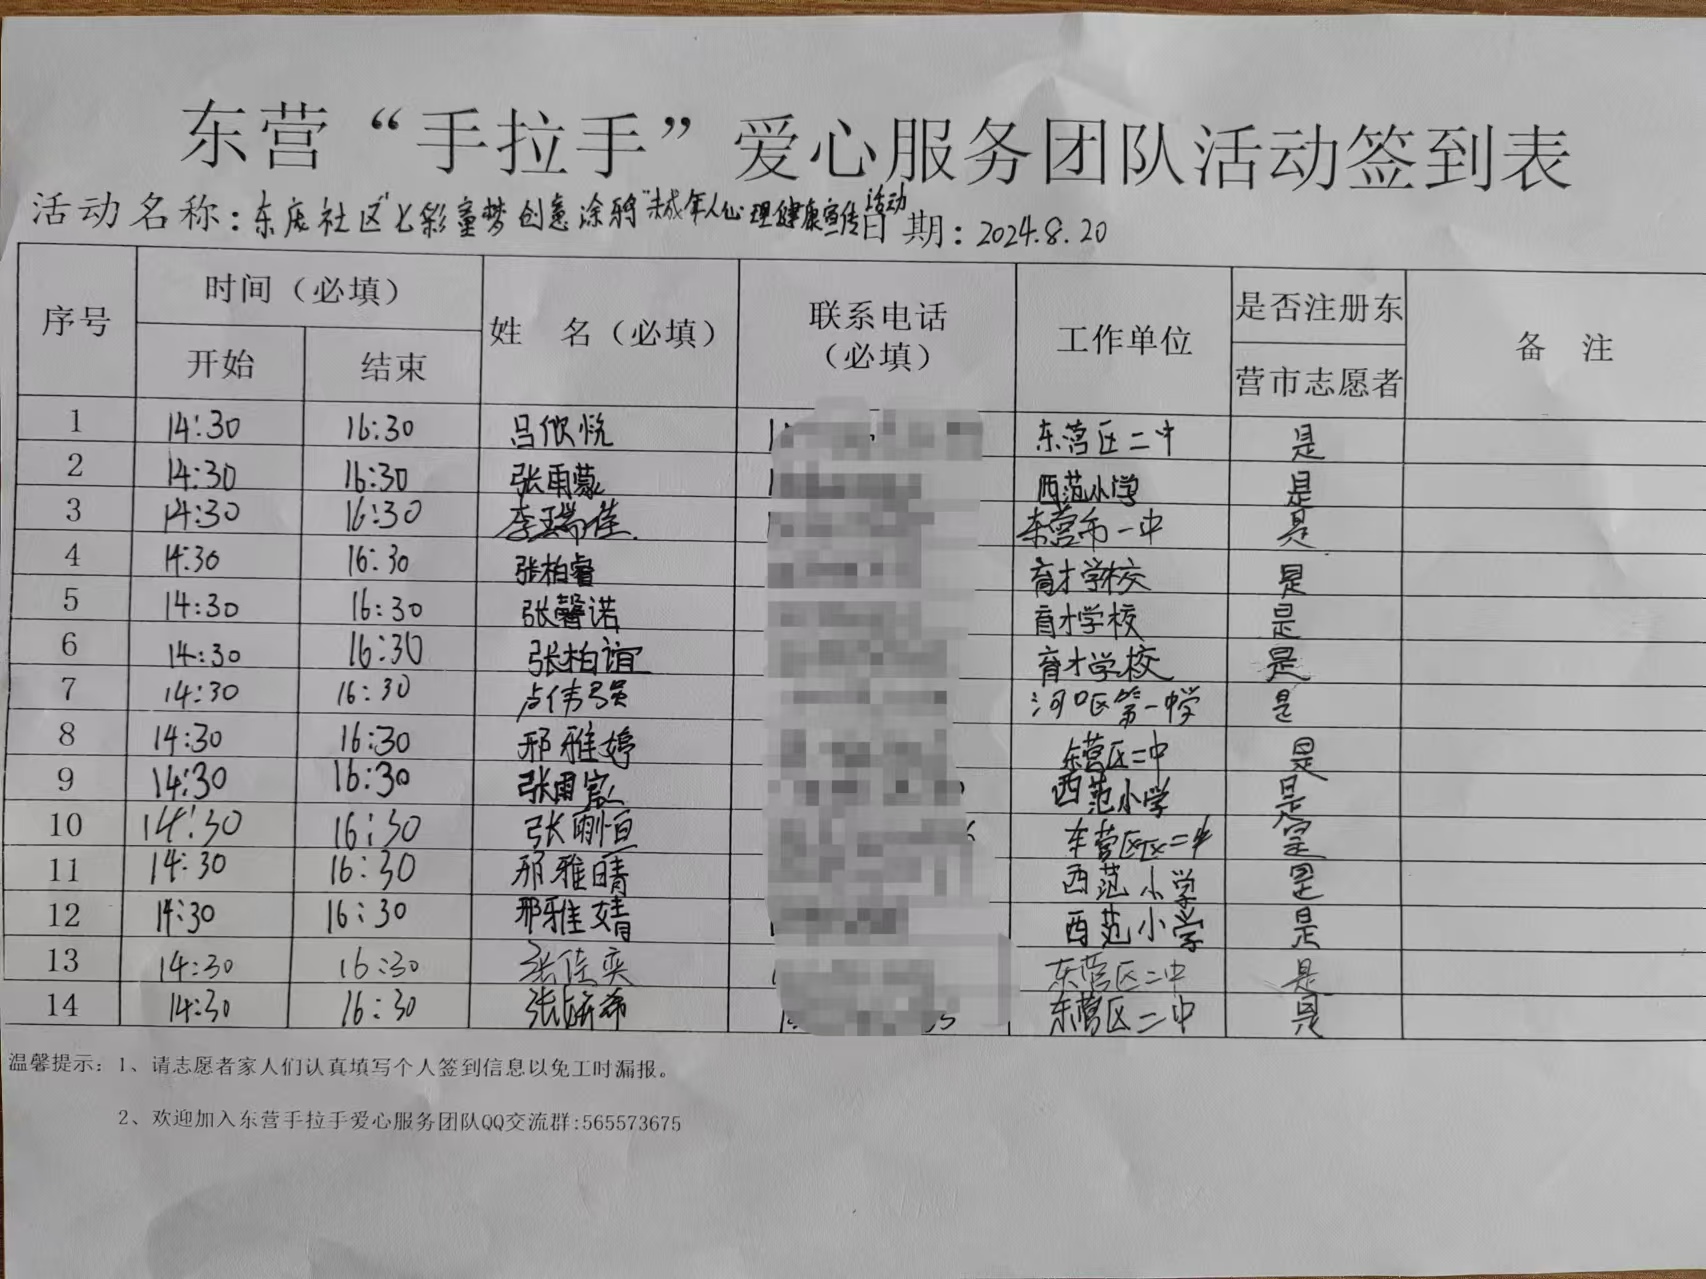 东营“手拉手”爱心服务团队活动签到表
活动名称：东庞社区"七彩童梦创意涂鸦"未成年人心理健康宣传活动 日期：2024.8.20
序号 时间（必填） 姓 名（必填） 联系电话（必填） 工作单位 是否注册东营市志愿者 备 注
开始 结束
1 14:30 16:30 吕欣悦 东营区二中 是
2 14:30 16:30 张雨蒙 西范小学 是
3 14:30 16:30 李瑞佳 东营市一中 是
4 14:30 16:30 张柏睿 育才学校 是
5 14:30 16:30 张馨诺 育才学校 是
6 14:30 16:30 张柏谊 育才学校 是
7 14:30 16:30 卢伟强 河口区第一中学 是
8 14:30 16:30 邢雅婷 东营区二中 是
9 14:30 16:30 张雨宸 西范小学 是
10 14:30 16:30 张刪恒 东营区区二中 是
11 14:30 16:30 邢雅晴 西范小学 是
12 14:30 16:30 邢雅婧 西范小学 是
13 14:30 16:30 张佳奕 东营区二中 是
14 14:30 16:30 张妍希 东营区二中 是
温馨提示：1、请志愿者家人们认真填写个人签到信息以免工时漏报。
2、欢迎加入东营手拉手爱心服务团队QQ交流群:565573675